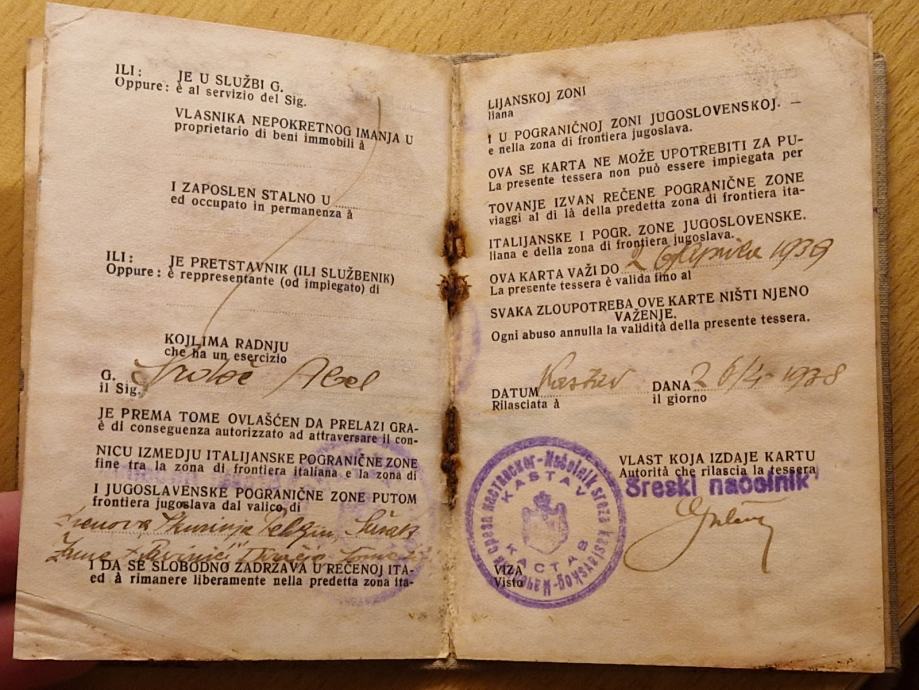 ILI: JE U SLUŽBI G.
Oppure: è al servizio del Sig.
VLASNIKA NEPOKRETNOG IMANJA U
proprietario di beni immobili à
I ZAPOSLEN STALNO U
ed occupato in permanenza à
ILI: JE PRETSTAVNIK (ILI SLUŽBENIK)
Oppure: è reppresentante (od impiegato) di
KOJLIMA RADNJU
che ha un esercizio
G. Abel
il Sig.
JE PREMA TOME OVLAŠĆEN DA PRELAZI GRA-
è di conseguenza autorizzato ad attraversare il con-
NICU IZMEDJU ITALIJANSKE POGRANIČNE ZONE
fine tra la zona di frontiera italiana e la zona di
I JUGOSLAVENSKE POGRANIČNE ZONE PUTOM
frontiera jugoslava dal valico di
I DA SE SLOBODNO ZADRŽAVA U REČENOJ ITA-
ed à rimanere liberamente nella predetta zona ita-
LIJANSKOJ ZONI
liana
I U POGRANIČNOJ ZONI JUGOSLOVENSKOJ. —
e nella zona di frontiera jugoslava.
OVA SE KARTA NE MOŽE UPOTREBITI ZA PU-
La presente tessera non può essere impiegata per
TOVANJE IZVAN REČENE POGRANIČNE ZONE
viaggi al di là della predetta zona di frontiera ita-
ITALIJANSKE I POGR. ZONE JUGOSLOVENSKE.
liana e della zona di frontiera jugoslava.
OVA KARTA VAŽI DO 26 aprila 1939
La presente tessera è valida fino al
SVAKA ZLOUPOTREBA OVE KARTE NIŠTI NJENO
VAŽENJE.
Ogni abuso annulla la validità della presente tessera.
DATUM Kastav DANA 26/4 1938
Rilasciata à il giorno
VLAST KOJA IZDAJE KARTU
Autorità che rilascia la tessera
Sreski načelnik
Načelnik sreza kastavskog
KASTAV
КАСТАВ
VIZA
Visto